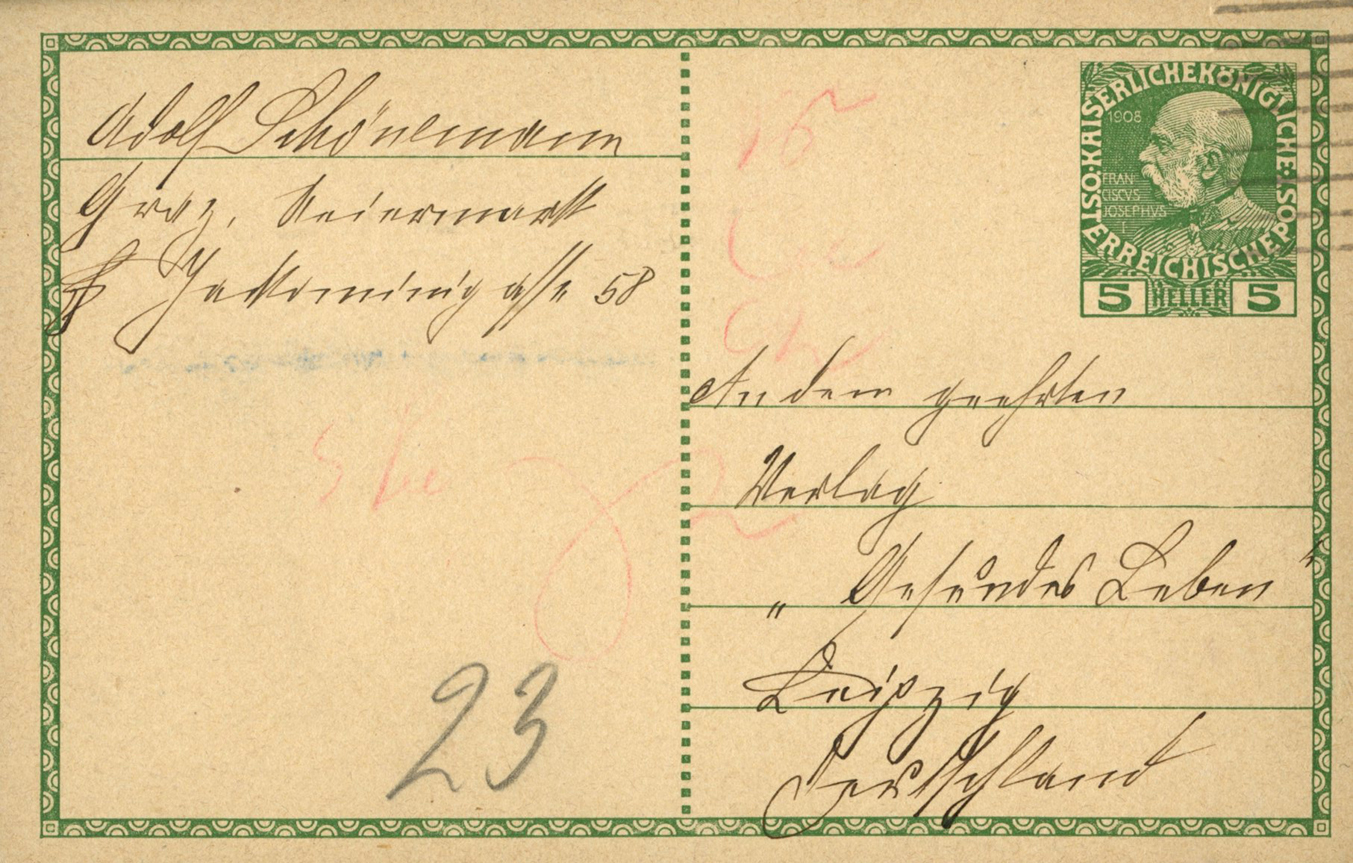 Adolf Schönemann
Graz, Steiermark
Jakominigasse 58
KAISERLICHE KÖNIGLICHE ÖSTERREICHISCHE POST
1908
FRAN
CISCVS
JOSEPHVS
I
5 HELLER 5
15
An dem geehrten
Verlag
„Gesundes Leben“
Leipzig
Deutschland
23